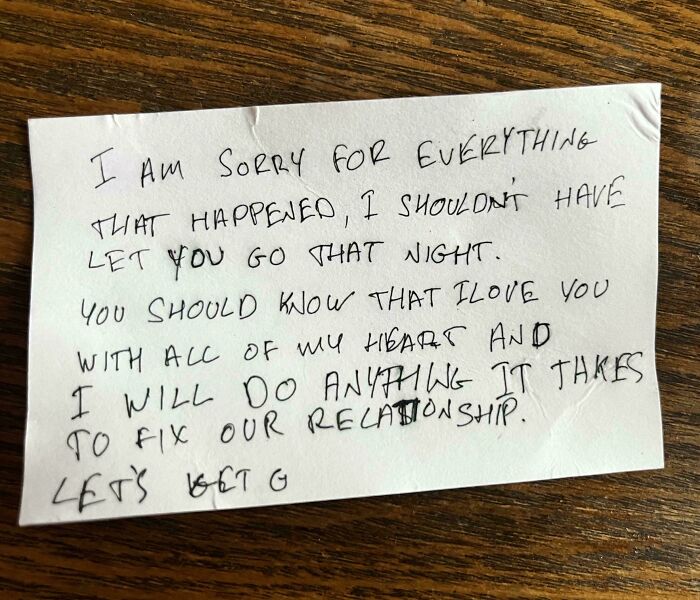 I AM SORRY FOR EVERYTHING
THAT HAPPENED, I SHOULDN'T HAVE
LET YOU GO THAT NIGHT.
YOU SHOULD KNOW THAT I LOVE YOU
WITH ALL OF MY HEART AND
I WILL DO ANYTHING IT TAKES
TO FIX OUR RELATIONSHIP.
LET'S GET G